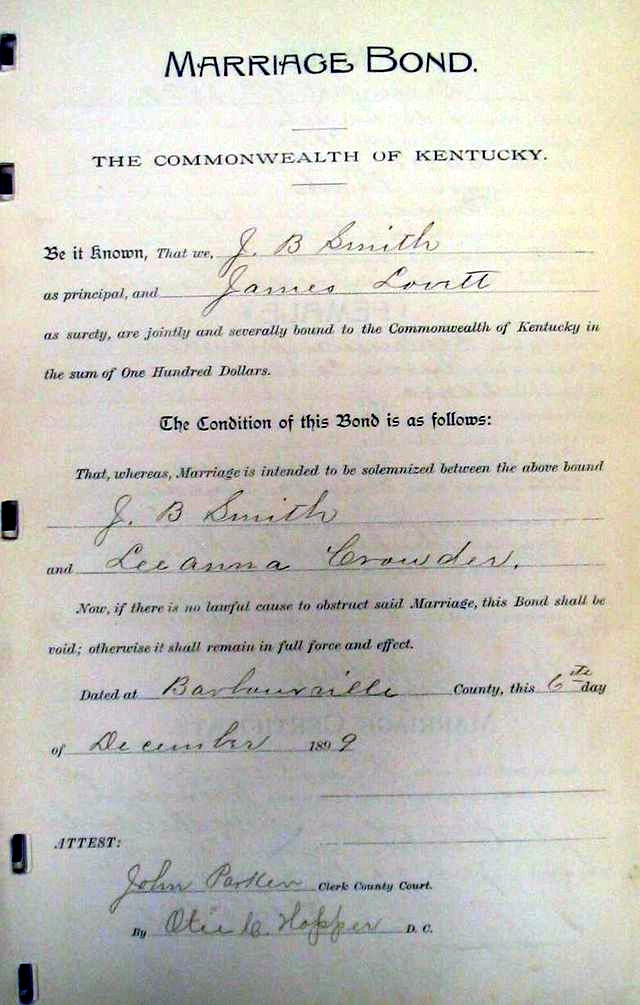 MARRIAGE BOND.
THE COMMONWEALTH OF KENTUCKY.
Be it Known, That we, J. B Smith
as principal, and James Lovett
as surety, are jointly and severally bound to the Commonwealth of Kentucky in
the sum of One Hundred Dollars.
The Condition of this Bond is as follows:
That, whereas, Marriage is intended to be solemnized between the above bound
J. B Smith
and Leeanna Crowder.
Now, if there is no lawful cause to obstruct said Marriage, this Bond shall be
void; otherwise it shall remain in full force and effect.
Dated at Barbourville County, this 6th day
of December 1899
ATTEST:
John Parker Clerk County Court.
By Otis C. Hopper D. C.